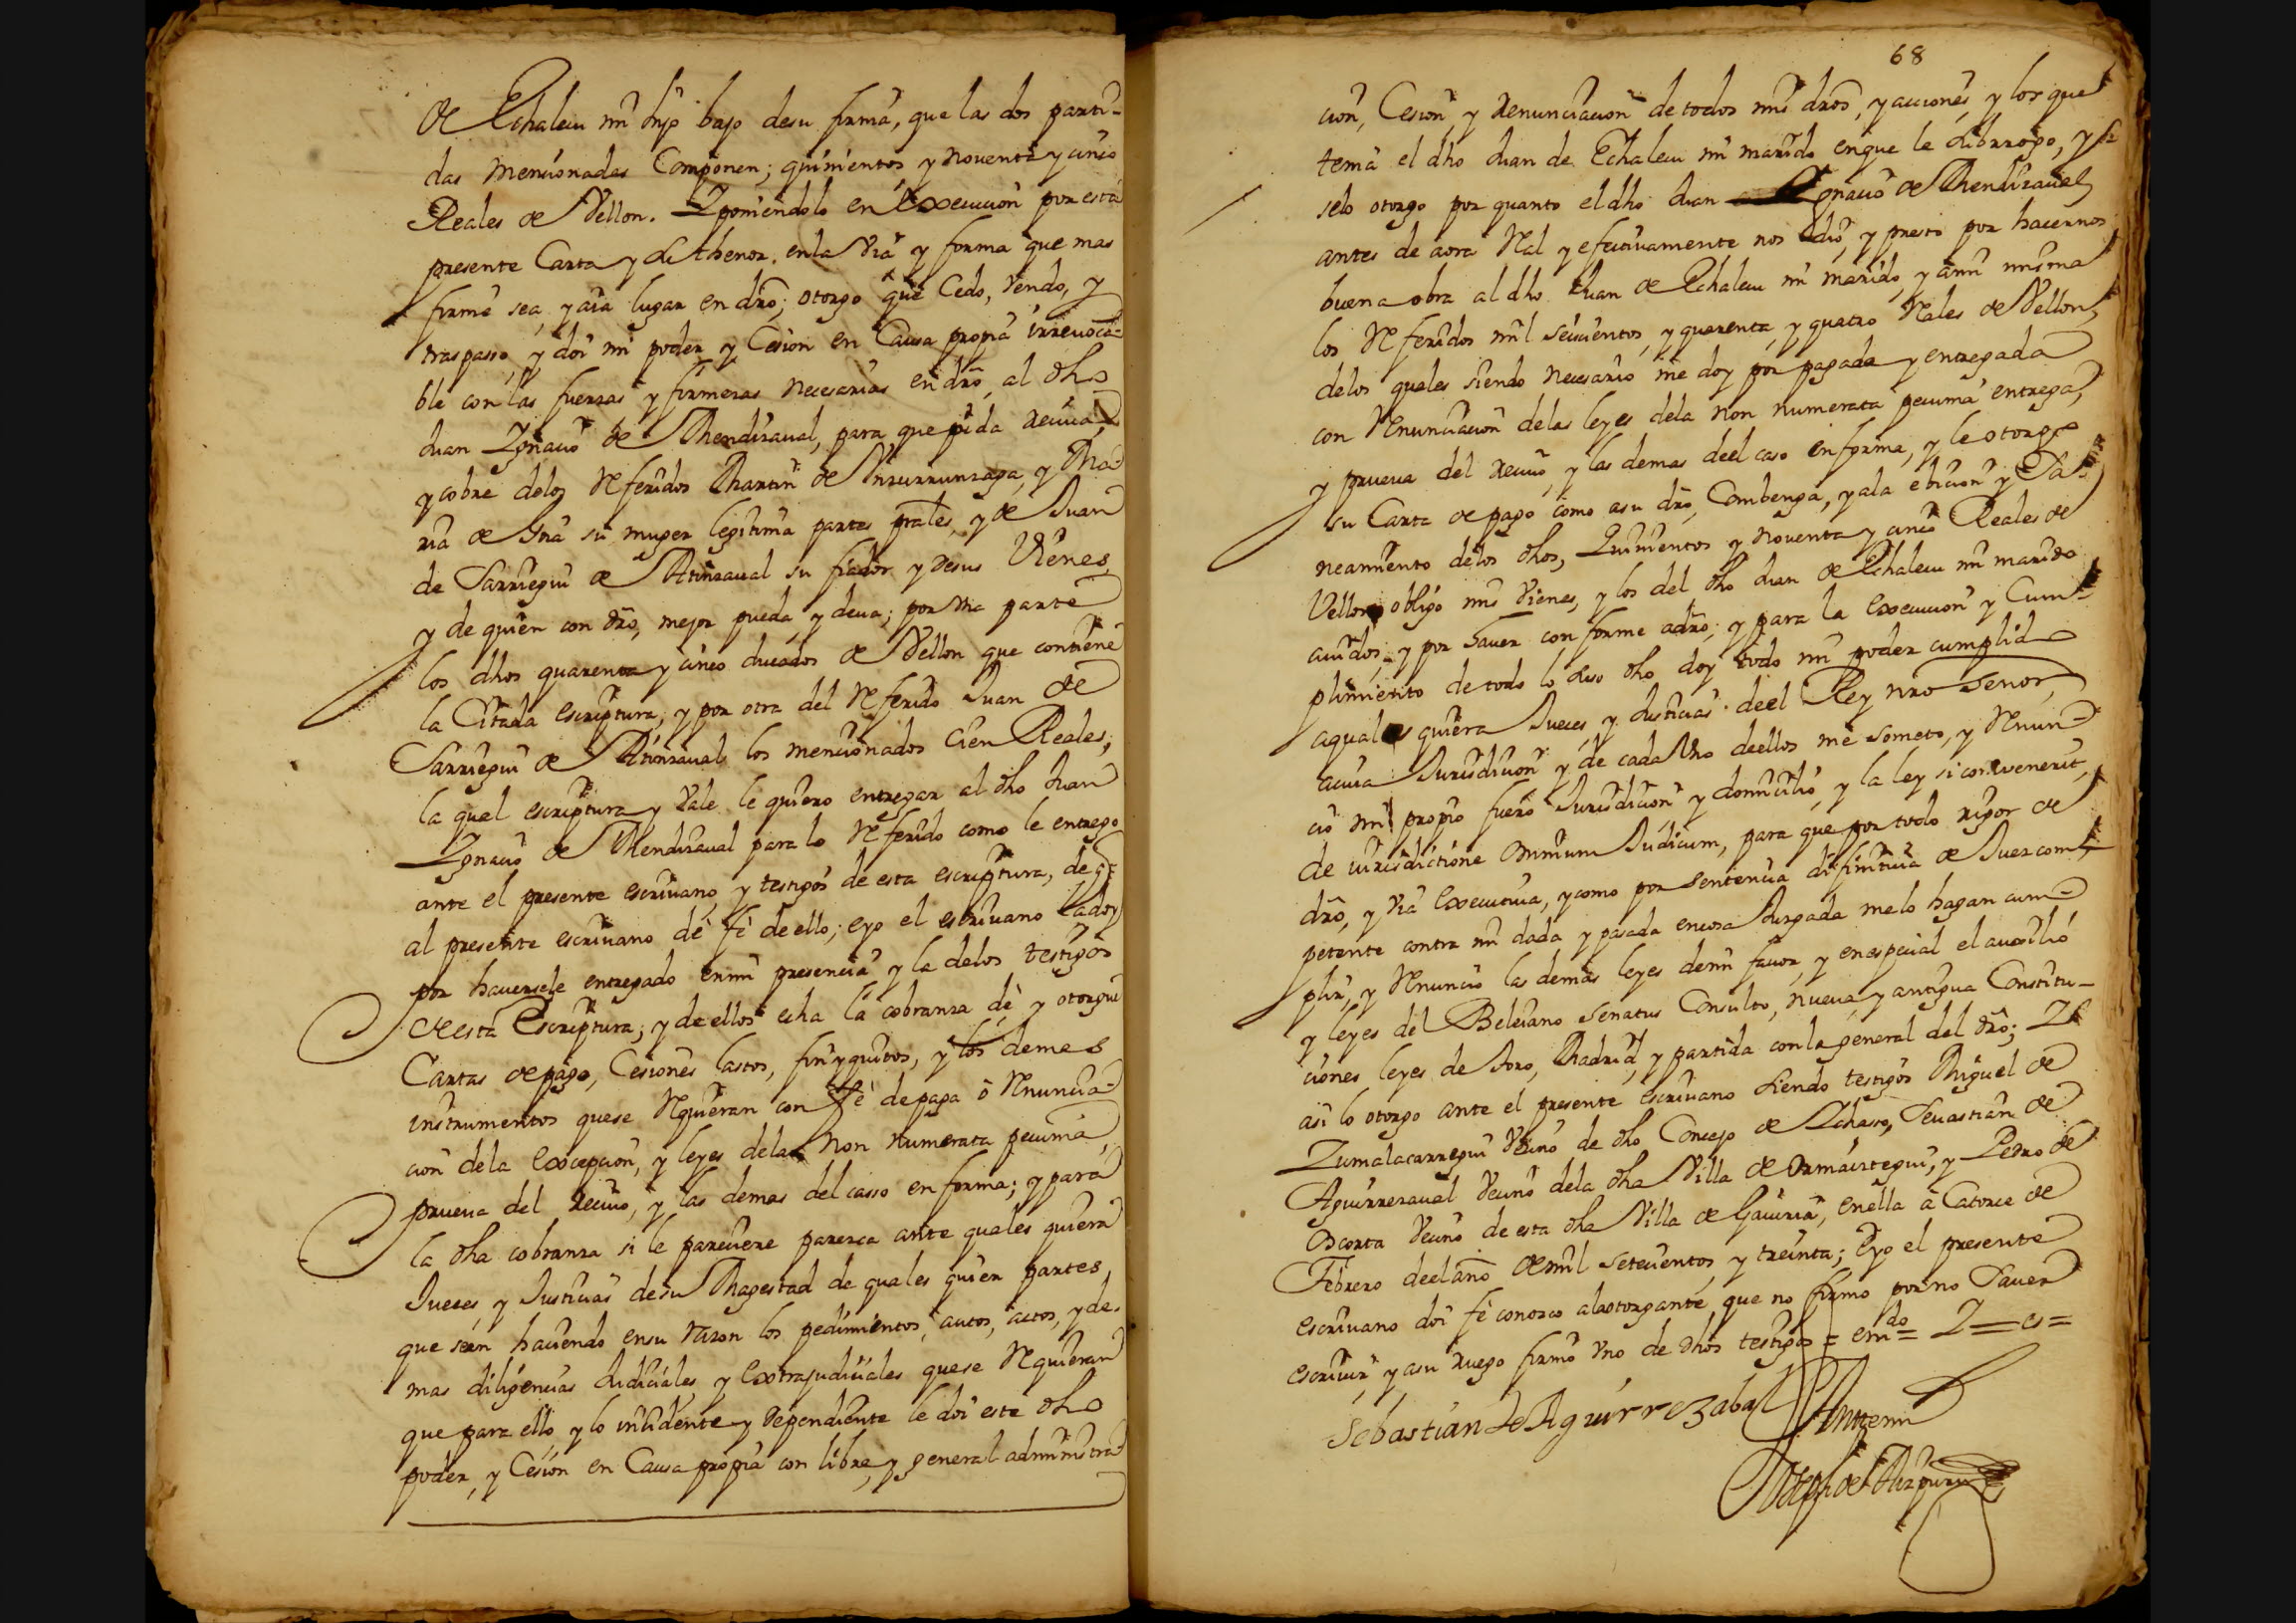 de Echalecu mi hijo bajo desu firma, que las dos parti-
das mencionadas Componen; quinientos y noventa y cinco
Reales de Vellon. Y poniendolo en execucion por esta
presente Carta y su thenor. enla via y forma que mas
firme sea, y aia lugar en dro; otorgo que Cedo, Vendo, y
traspasso, y doi mi poder y Cesion en Causa propia irrevoca-
ble con las fuerzas y firmezas necesarias en dro, al dho
Juan Ygnacio de Mendizaval, para que pida reciva,
y cobre delos referidos Martin de Ynsurrunzaga, y Ma-
ria de su muger legitima partes prales, y de Juan
de Sarriegui de Atinzaval su fiador y desus Vienes,
y de quien con dro, mejor pueda, y deva; por vna parte
los dhos quarenta y cinco ducados de Vellon que contiene
la Citada escriptura; y por otra del referido Juan de
Sarriegui de Atinzaval, los mencionados cien Reales;
la qual escriptura y Vale le quiero entregar al dho Juan
Ygnacio de Mendizaval para lo referido como le entrego
ante el presente escrivano, y testigos de esta escriptura, de q
al presente escrivano dé fé de ello; eyo el escrivano la doy
por haversele entregado en mi presencia y la delos testigos
de esta Escriptura; y de ellos echa la cobranza dé y otorgue
Cartas de pago, Cesiones lastos, finyquitos, y los demas
instrumentos quese requieran con fé de paga ó renuncia-
cion dela excepcion, y leyes dela non numerata pecunia
prueva del recivo, y las demas del casso en forma; y para
la dha cobranza si le pareciere parezca ante quales quiera
Jueces, y Justicias desu Magestad de quales quier partes,
que sean haciendo ensu razon los pedimientos, autos, actos, y de-
mas diligencias Judiciales, y extrajudiciales quese requieran
que para ello, y lo incidente y dependiente le doi este dho
poder, y Cesion en Causa propia con libre, y general administra-
68
cion, Cesion y renunciacion de todos mis dros, y acciones, y los que
tenia el dho Juan de Echalecu mi marido enque le subrrogo, y se
selo otorgo por quanto el dho Juan Ygnacio de Mendizaval
antes de aora real y efectivamente nos dio, y presto por hacernos
buena obra al dho Juan de Echalecu mi marido, y ami misma
los referidos mil seiscientos, y quarenta, y quatro reales de Vellon,
delos quales siendo necesario me doy por pagada y entregada
con renunciacion delas leyes dela non numerata pecunia entrega,
y prueva del recivo, y las demas deel caso en forma, y le otorgo
su Carta de pago como asu dro, Combenga, y ala eviccion y Sa-
neamiento delos dhos, Quinientos y noventa y cinco Reales de
Vellon obligo mis Vienes, y los del dho Juan de Echalecu mi marido
avidos, y por haver conforme adro; y para la execucion y Cum-
plimiento de todo lo suso dho doy todo mi poder cumplido
aquales quiera Jueces, y Justicias deel Rey nro Señor,
acuia Jurisdicion y de cada vno deellos me someto, y renun-
cio mi propio fuero Jurisdicion y domicilio, y la ley si convenerit,
de iurisdictione omnium Judicum, para que por todo rigor de
dro, y via executiva, y como por sentencia difinitiva de Juez com-
petente contra mi dada y pasada encosa Juzgada melo hagan cum-
plir, y renuncio las demas leyes demi favor, y enespecial el auxilio
y leyes del Beleiano Senatus Consulto, nueva, y antigua Constitu-
ciones leyes de toro, Madrid, y partida con la general del dro; Y
asi lo otorgo ante el presente escrivano siendo testigos Miguel de
Zumalacarregui vecino de dho Concejo de Ychaso, Sevastian de
Aguirrezaval vecino dela dha Villa de Ormaiztegui, y Pedro de
vecino de esta dha Villa de Gaviria, enella á Catorce de
Febrero deel año de mil setecientos y treinta; Eyo el presente
escrivano doi fé conozco alaotorgante, que no firmo por no saver
escrivir, y asu ruego firmó vno de dhos testigos = emdo = Y = es =
Sebastian de Aguirrezabal Antemi
Joseph de Aizpuru